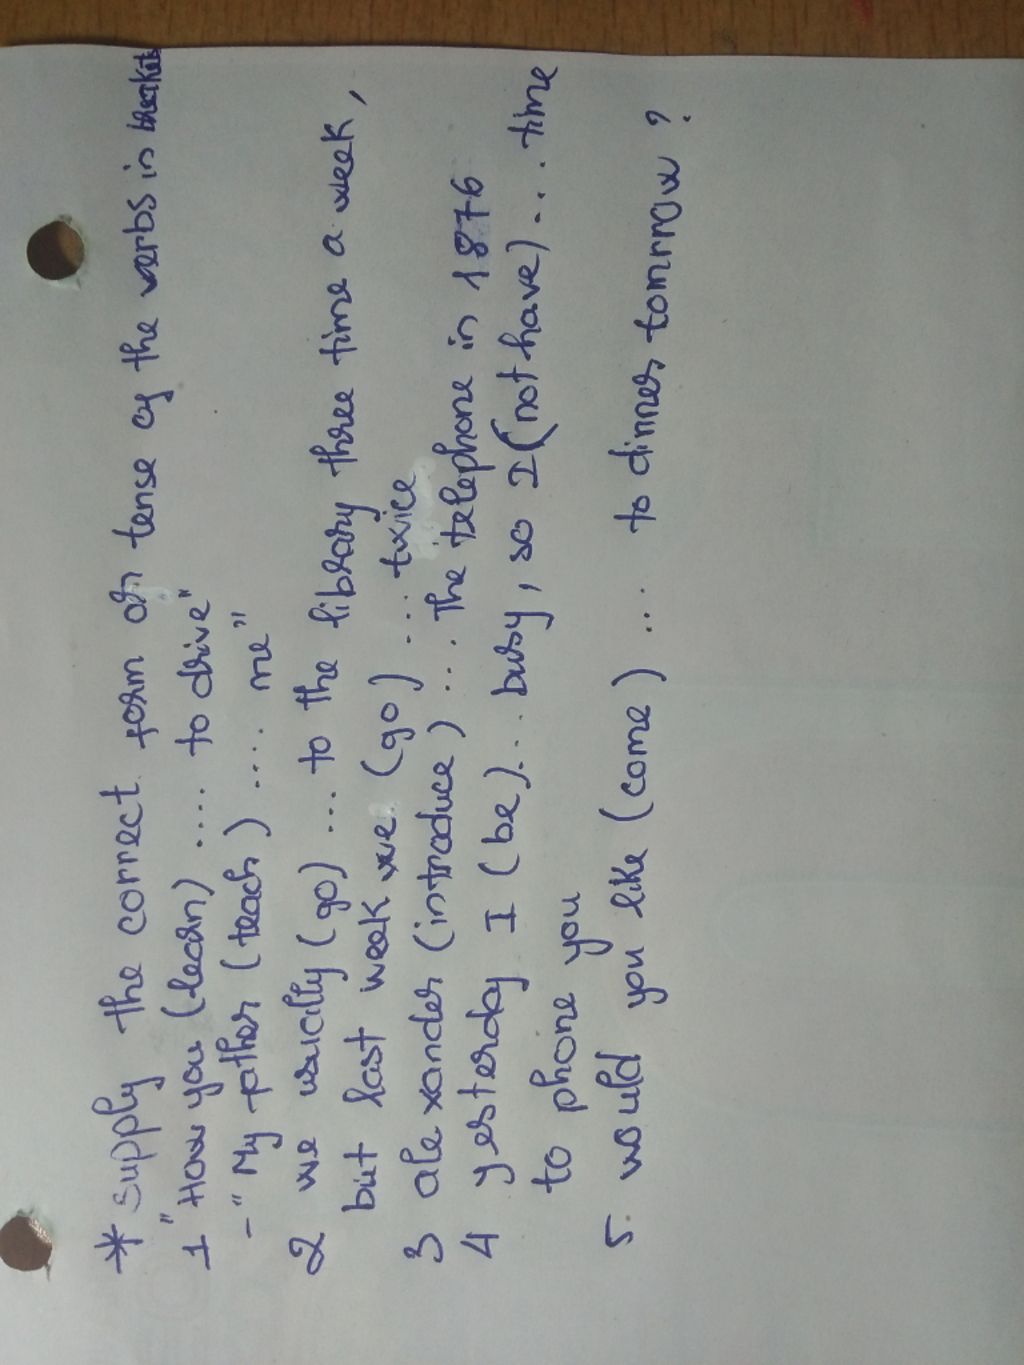 * supply the correct form or tense of the verbs in brackets
1 "How you (learn) .... to drive"
- "My father (teach) .... me"
2 we usually (go) ... to the library three time a week,
but last week we (go) ... twice
3 alexander (introduce) ... the telephone in 1876
4 yesterday I (be)... busy, so I (not have)... time
to phone you
5. would you like (come) ... to dinner tomrrow ?